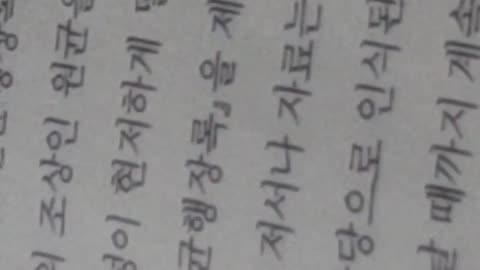 조상인 원균을
이 현저하게
균행장록』을 제
저서나 자료는
당으로 인식된
때까지 계속